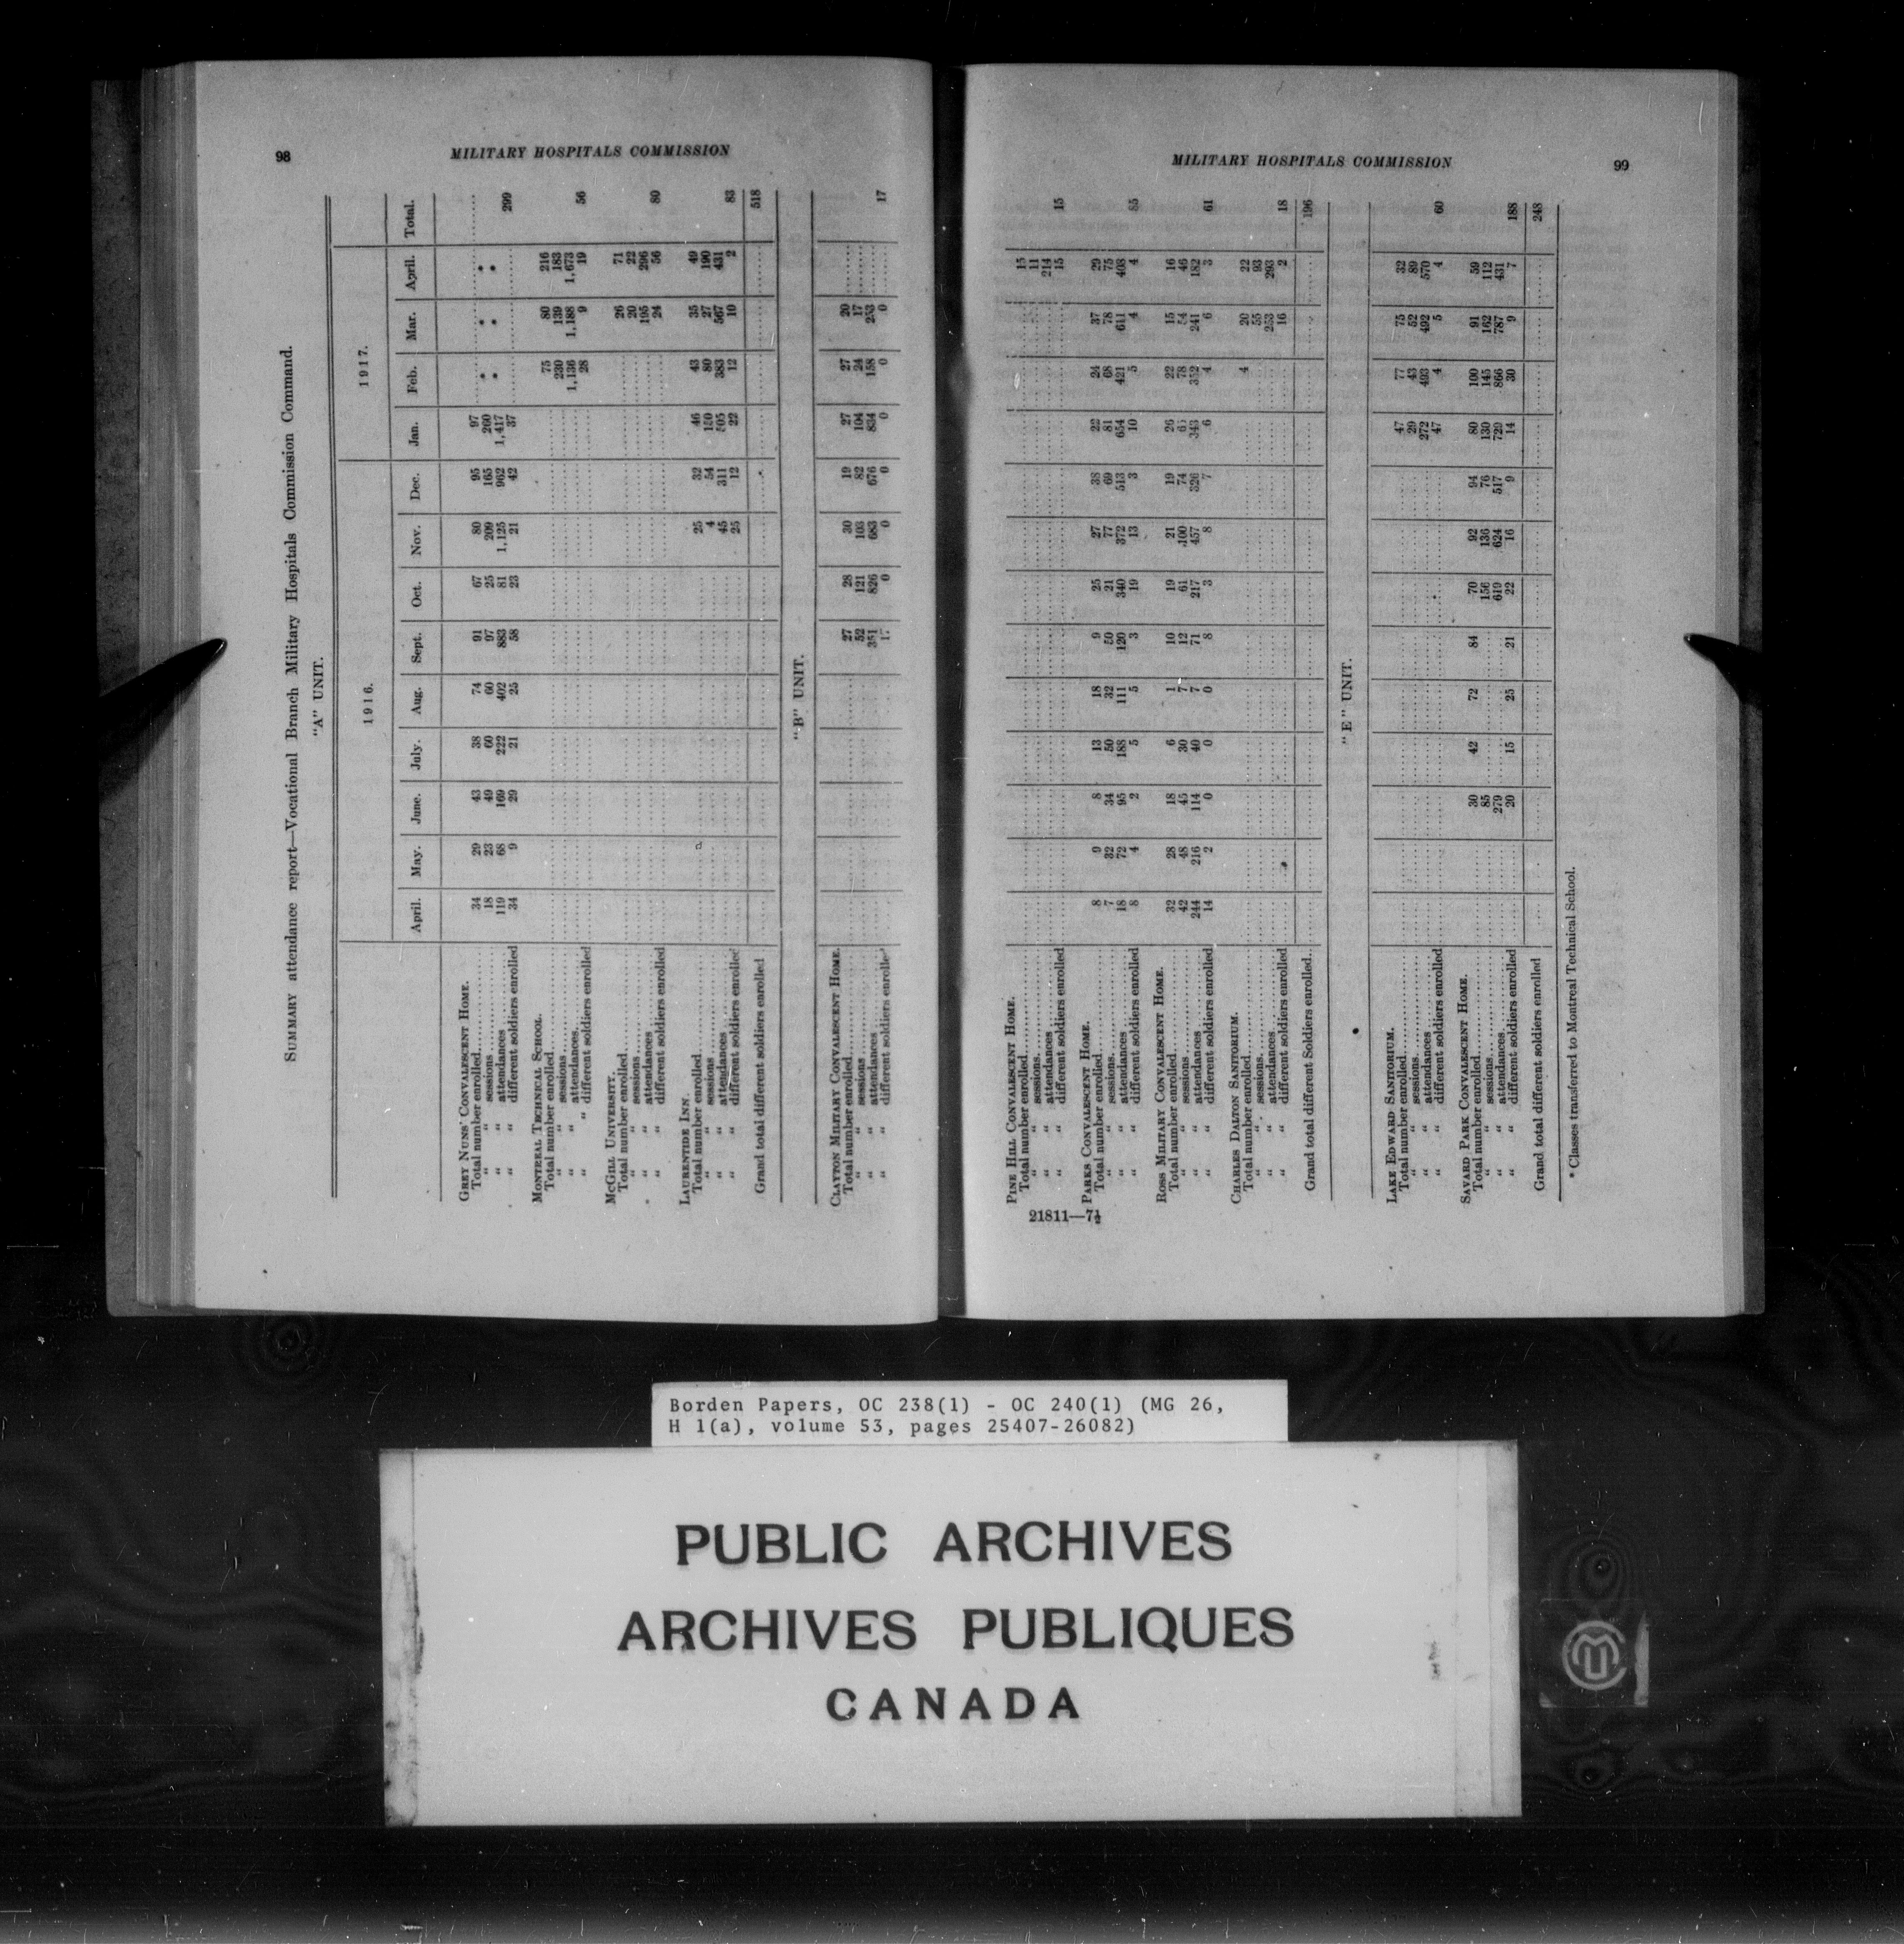 98
MILITARY HOSPITALS COMMISSION
SUMMARY attendance report—Vocational Branch Military Hospitals Commission Command.
"A" UNIT.
1916. 1917.
April. May. June. July. Aug. Sept. Oct. Nov. Dec. Jan. Feb. Mar. April. Total.
GREY NUNS' CONVALESCENT HOME.
Total number enrolled 34 29 43 38 74 91 67 80 95 97
" " sessions 18 23 49 60 60 97 25 209 165 260 * * *
" " attendances 119 68 169 222 402 883 81 1,125 962 1,417 * * *
" " different soldiers enrolled 34 9 29 21 25 58 23 21 42 37 299
MONTREAL TECHNICAL SCHOOL.
Total number enrolled 75 80 216
" " sessions 230 139 183
" " attendances 1,136 1,188 1,673
" " different soldiers enrolled 28 9 19 56
MCGILL UNIVERSITY.
Total number enrolled 26 71
" " sessions 20 22
" " attendances 195 296
" " different soldiers enrolled 24 56 80
LAURENTIDE INN.
Total number enrolled 25 32 46 43 35 49
" " sessions 4 54 150 80 27 190
" " attendances 45 311 505 383 567 431
" " different soldiers enrolled 25 12 22 12 10 2 83
Grand total different soldiers enrolled 518
"B" UNIT.
CLAYTON MILITARY CONVALESCENT HOME.
Total number enrolled 27 28 30 19 27 27 20
" " sessions 52 121 103 82 104 24 17
" " attendances 351 826 683 676 834 158 253
" " different soldiers enrolled 17 0 0 0 0 0 0 17
MILITARY HOSPITALS COMMISSION
99
PINE HILL CONVALESCENT HOME.
Total number enrolled 15
" " sessions 11
" " attendances 214
" " different soldiers enrolled 15 15
PARKS CONVALESCENT HOME.
Total number enrolled 8 9 8 13 18 9 25 27 38 22 24 37 29
" " sessions 7 32 34 50 32 50 21 77 69 81 68 78 75
" " attendances 18 72 95 188 111 120 340 372 513 654 421 611 408
" " different soldiers enrolled 8 4 2 5 5 3 19 13 3 10 5 4 4 85
ROSS MILITARY CONVALESCENT HOME.
Total number enrolled 32 28 18 6 1 10 19 21 19 26 22 15 16
" " sessions 42 48 45 30 7 12 61 100 74 78 54 46
" " attendances 244 216 114 40 7 71 217 457 326 343 352 241 182
" " different soldiers enrolled 14 2 0 0 0 8 3 8 7 6 4 6 3 61
CHARLES DALTON SANITORIUM.
Total number enrolled 4 20 22
" " sessions 55 93
" " attendances 253 293
" " different soldiers enrolled 16 2 18
Grand total different Soldiers enrolled 196
"E" UNIT.
LAKE EDWARD SANITORIUM.
Total number enrolled 47 77 75 32
" " sessions 29 43 52 89
" " attendances 272 493 492 570
" " different soldiers enrolled 47 4 5 4 60
SAVARD PARK CONVALESCENT HOME.
Total number enrolled 30 42 72 84 70 92 94 80 100 91 59
" " sessions 85 156 136 76 130 145 162 112
" " attendances 279 619 624 517 729 866 787 431
" " different soldiers enrolled 20 15 25 21 22 16 9 14 30 9 7 188
Grand total different soldiers enrolled 248
* Classes transferred to Montreal Technical School.
21811—7½
Borden Papers, OC 238(1) - OC 240(1) (MG 26,
H 1(a), volume 53, pages 25407-26082)
PUBLIC ARCHIVES
ARCHIVES PUBLIQUES
CANADA